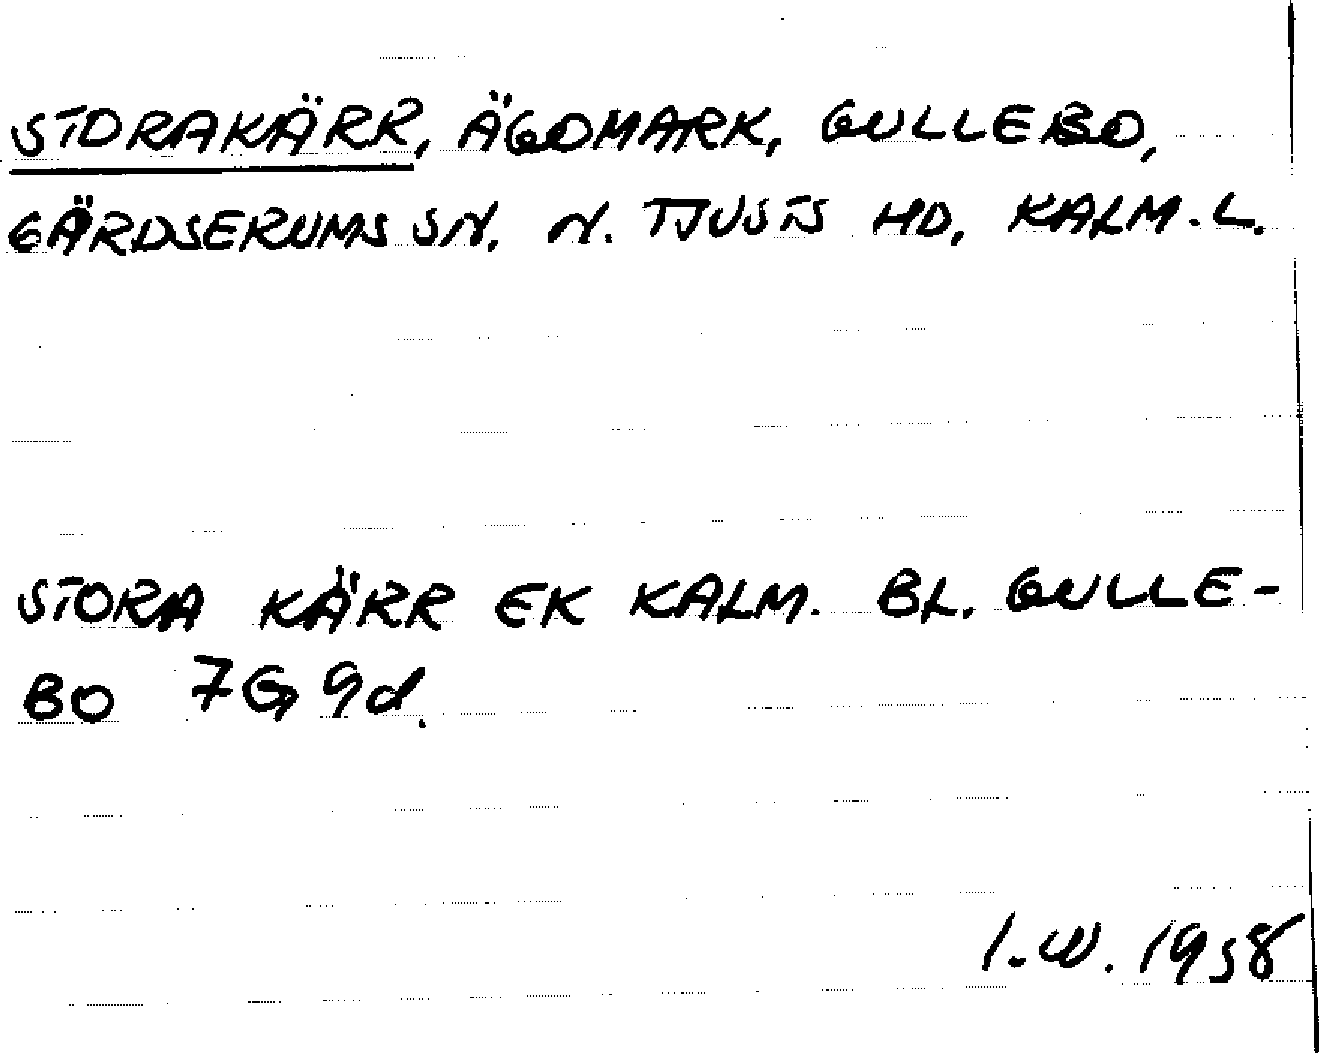 STORAKÄRR, ÄGOMARK, GULLEBO,
GÄRDSERUMS SN. N. TJUSTS HD, KALM. L.
STORA KÄRR EK KALM. BL. GULLE-
BO 7G 9d.
I.W. 1958